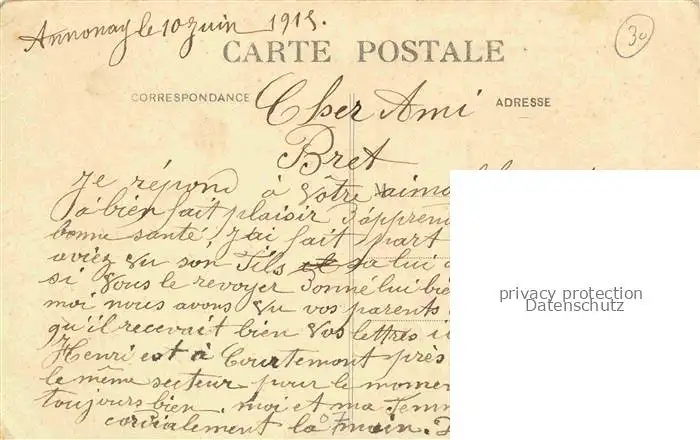 Annonay le 10 Juin 1915.
30
CARTE POSTALE
CORRESPONDANCE
ADRESSE
Cher Ami
Bret
Je répond à Vôtre aima
à bien fait plaisir d'appren
bonne santé, j'ai fait part
aviez vu son Fils et sa lui
si Vous le revoyer Donné lui biè
moi nous avons vu vos parents
qu'il recevait bien Vos lettres i
Henri est à Courtemont près
le même secteur pour le momen
toujours bien. moi et ma Femm
cordialement la main.
privacy protection
Datenschutz